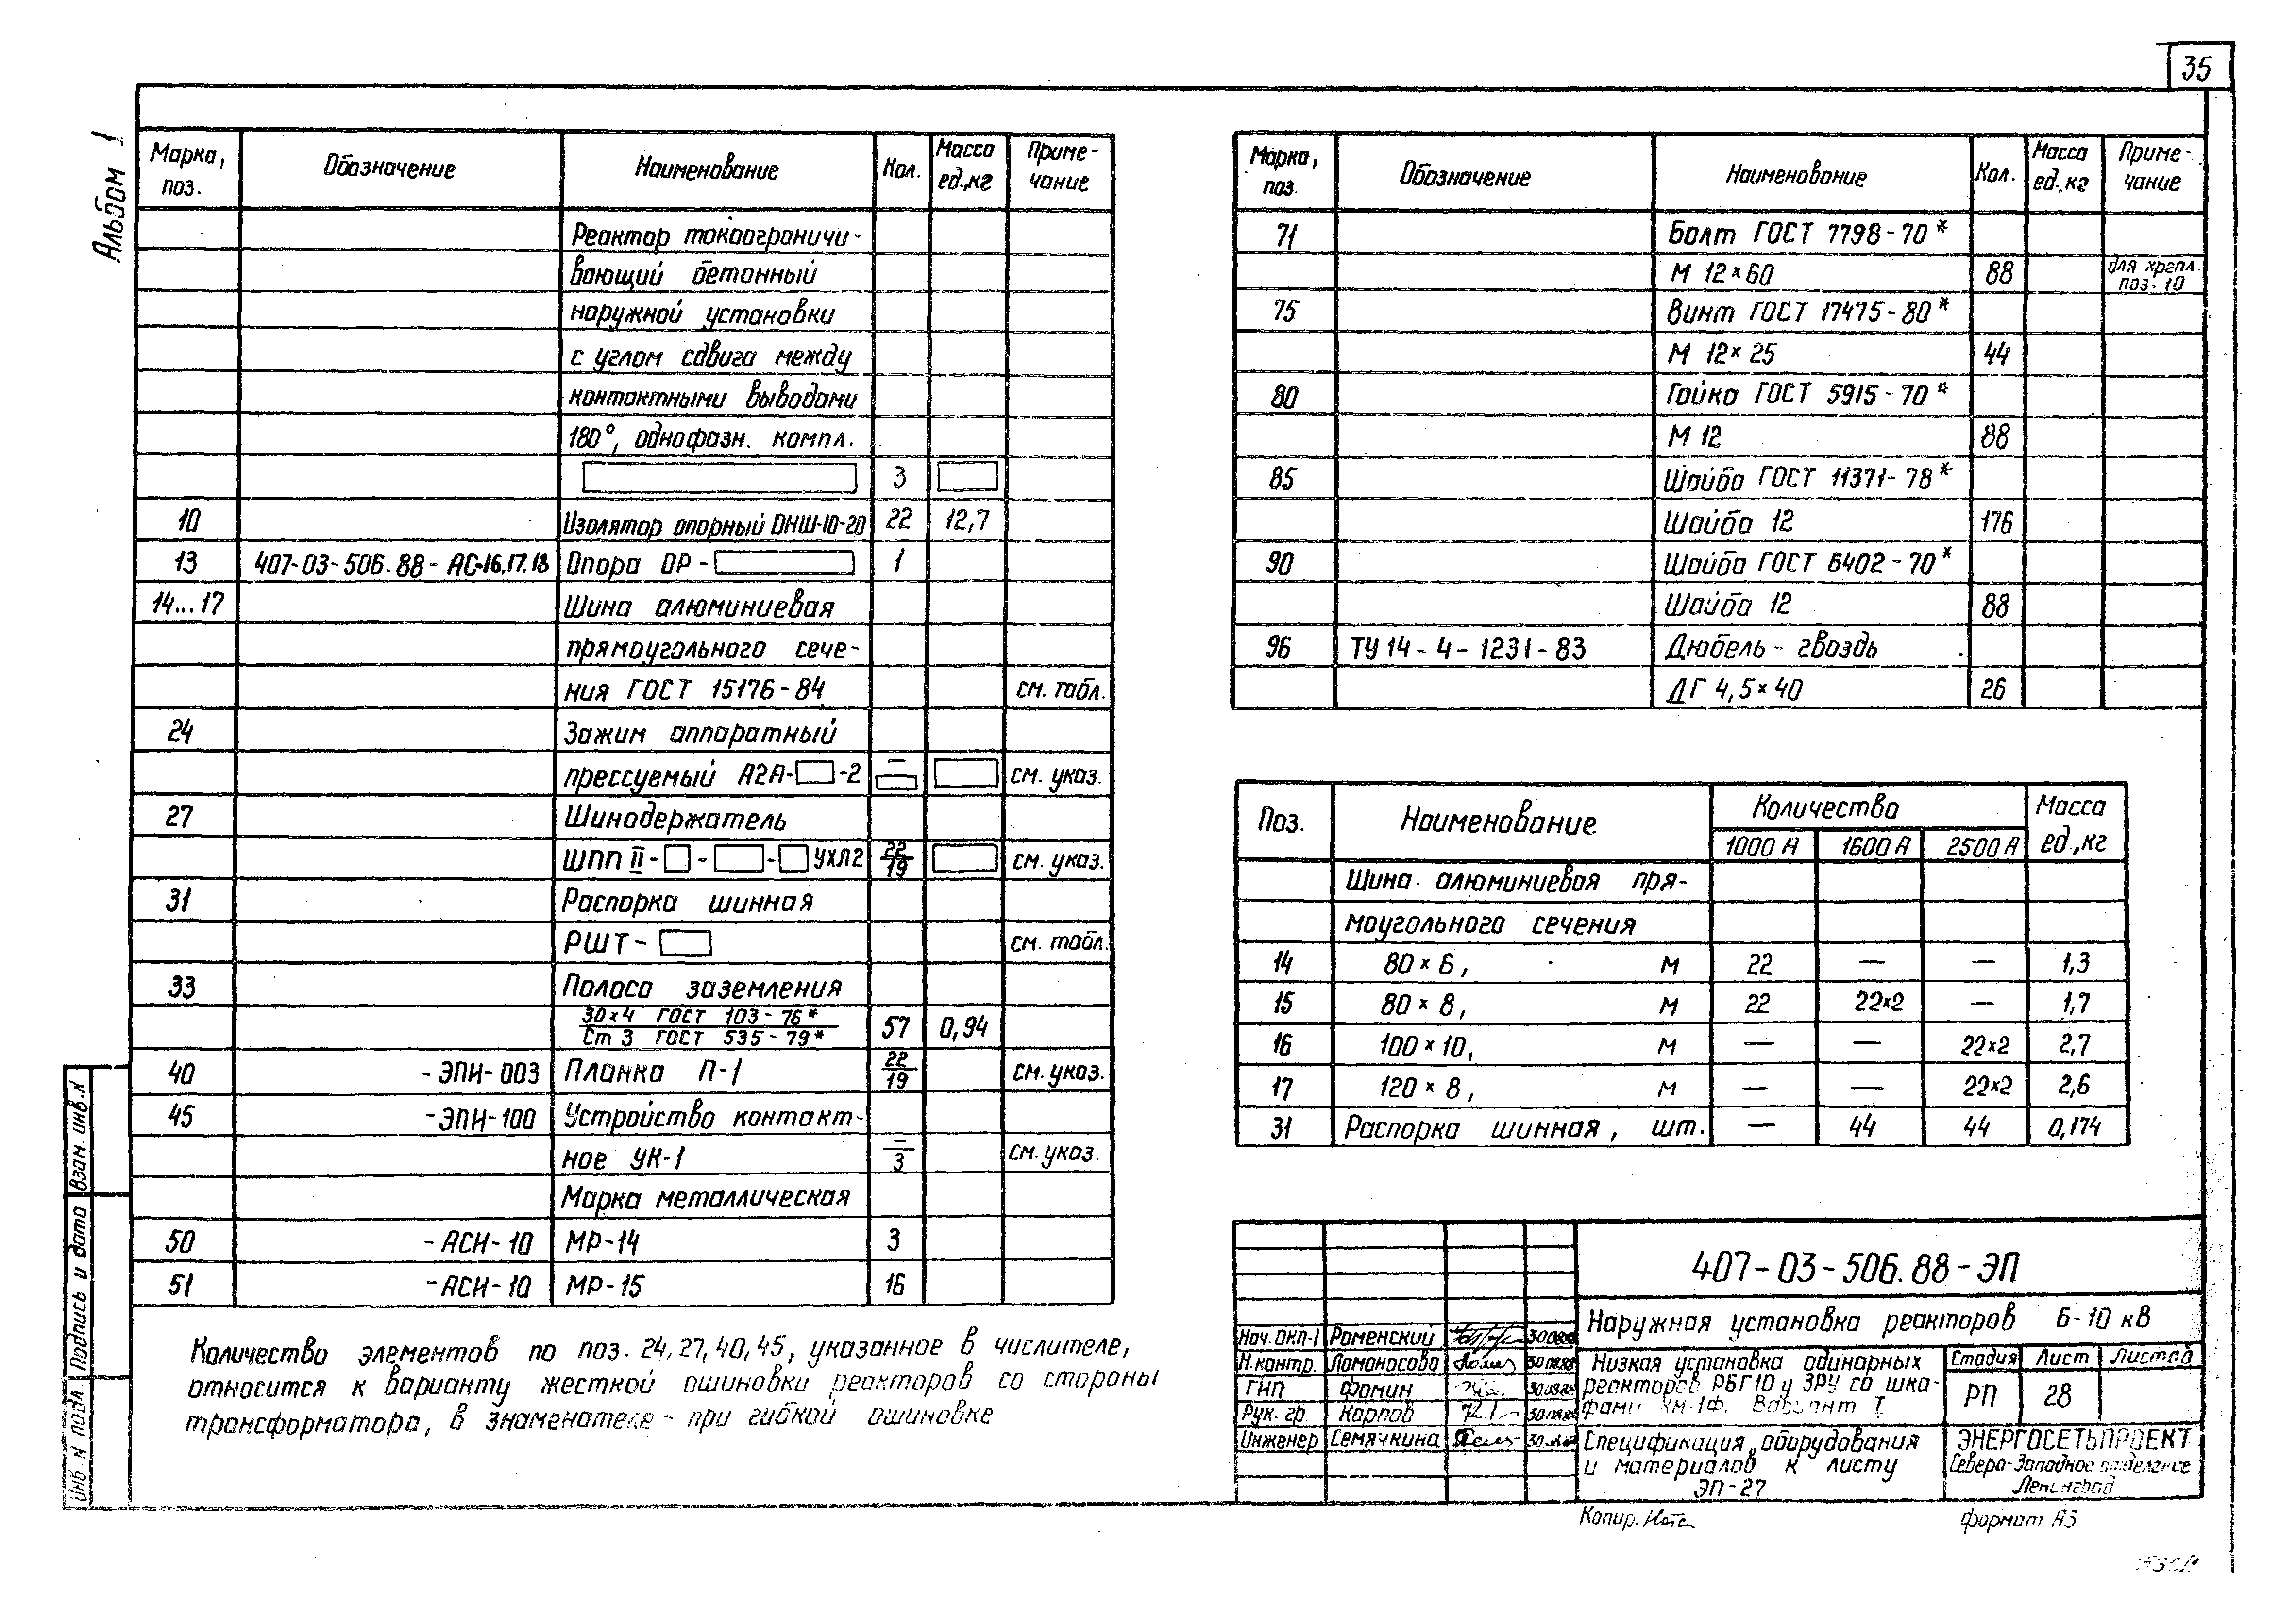 35
Альбом 1
Марка, поз. Обозначение Наименование Кол. Масса ед.,кг Приме-чание
Реактор токоограничи-
вающий бетонный
наружной установки
с углом сдвига между
контактными выводами
180°, однофазн. компл.
3
10 Изолятор опорный ОНШ-10-20 22 12,7
13 407-03-506.88-АС-16,17,18 Опора ОР- 1
14...17 Шина алюминиевая
прямоугольного сече-
ния ГОСТ 15176-84 см. табл.
24 Зажим аппаратный
прессуемый А2А- -2 — см. указ.
27 Шинодержатель
ШПП II- - - УХЛ2 22/19 см. указ.
31 Распорка шинная
РШТ- см. табл.
33 Полоса заземления
30×4 ГОСТ 103-76*
Ст 3 ГОСТ 535-79* 57 0,94
40 -ЭПИ-003 Планка П-1 22/19 см. указ.
45 -ЭПИ-100 Устройство контакт-
ное УК-1 —/3 см. указ.
Марка металлическая
50 -АСИ-10 МР-14 3
51 -АСИ-10 МР-15 16
Количество элементов по поз. 24,27,40,45, указанное в числителе,
относится к варианту жесткой ошиновки реакторов со стороны
трансформатора, в знаменателе - при гибкой ошиновке
Марка, поз. Обозначение Наименование Кол. Масса ед.,кг Приме-чание
71 Болт ГОСТ 7798-70*
М 12×60 88 для крепл. поз. 10
75 Винт ГОСТ 17475-80*
М 12×25 44
80 Гайка ГОСТ 5915-70*
М 12 88
85 Шайба ГОСТ 11371-78*
Шайба 12 176
90 Шайба ГОСТ 6402-70*
Шайба 12 88
96 ТУ 14-4-1231-83 Дюбель-гвоздь
ДГ 4,5×40 26
Поз. Наименование Количество Масса ед.,кг
1000 А 1600 А 2500 А
Шина алюминиевая пря-
моугольного сечения
14 80×6, м 22 — — 1,3
15 80×8, м 22 22×2 — 1,7
16 100×10, м — — 22×2 2,7
17 120×8, м — — 22×2 2,6
31 Распорка шинная, шт. — 44 44 0,174
407-03-506.88-ЭП
Наружная установка реакторов 6-10 кВ
Нач. ОКП-1 Роменский
Н.контр. Ломоносова
ГИП Фомин
Рук. гр. Карпов
Инженер Семячкина
Низкая установка одинарных
реакторов РБГ10 у ЗРУ со шка-
фами КМ-1Ф. Вариант I
Стадия Лист Листов
РП 28
Спецификация оборудования
и материалов к листу
ЭП-27
ЭНЕРГОСЕТЬПРОЕКТ
Северо-Западное отделение
Ленинград
Копир.
формат А3
Взам. инв.N
Подпись и дата
Инв. N подл.